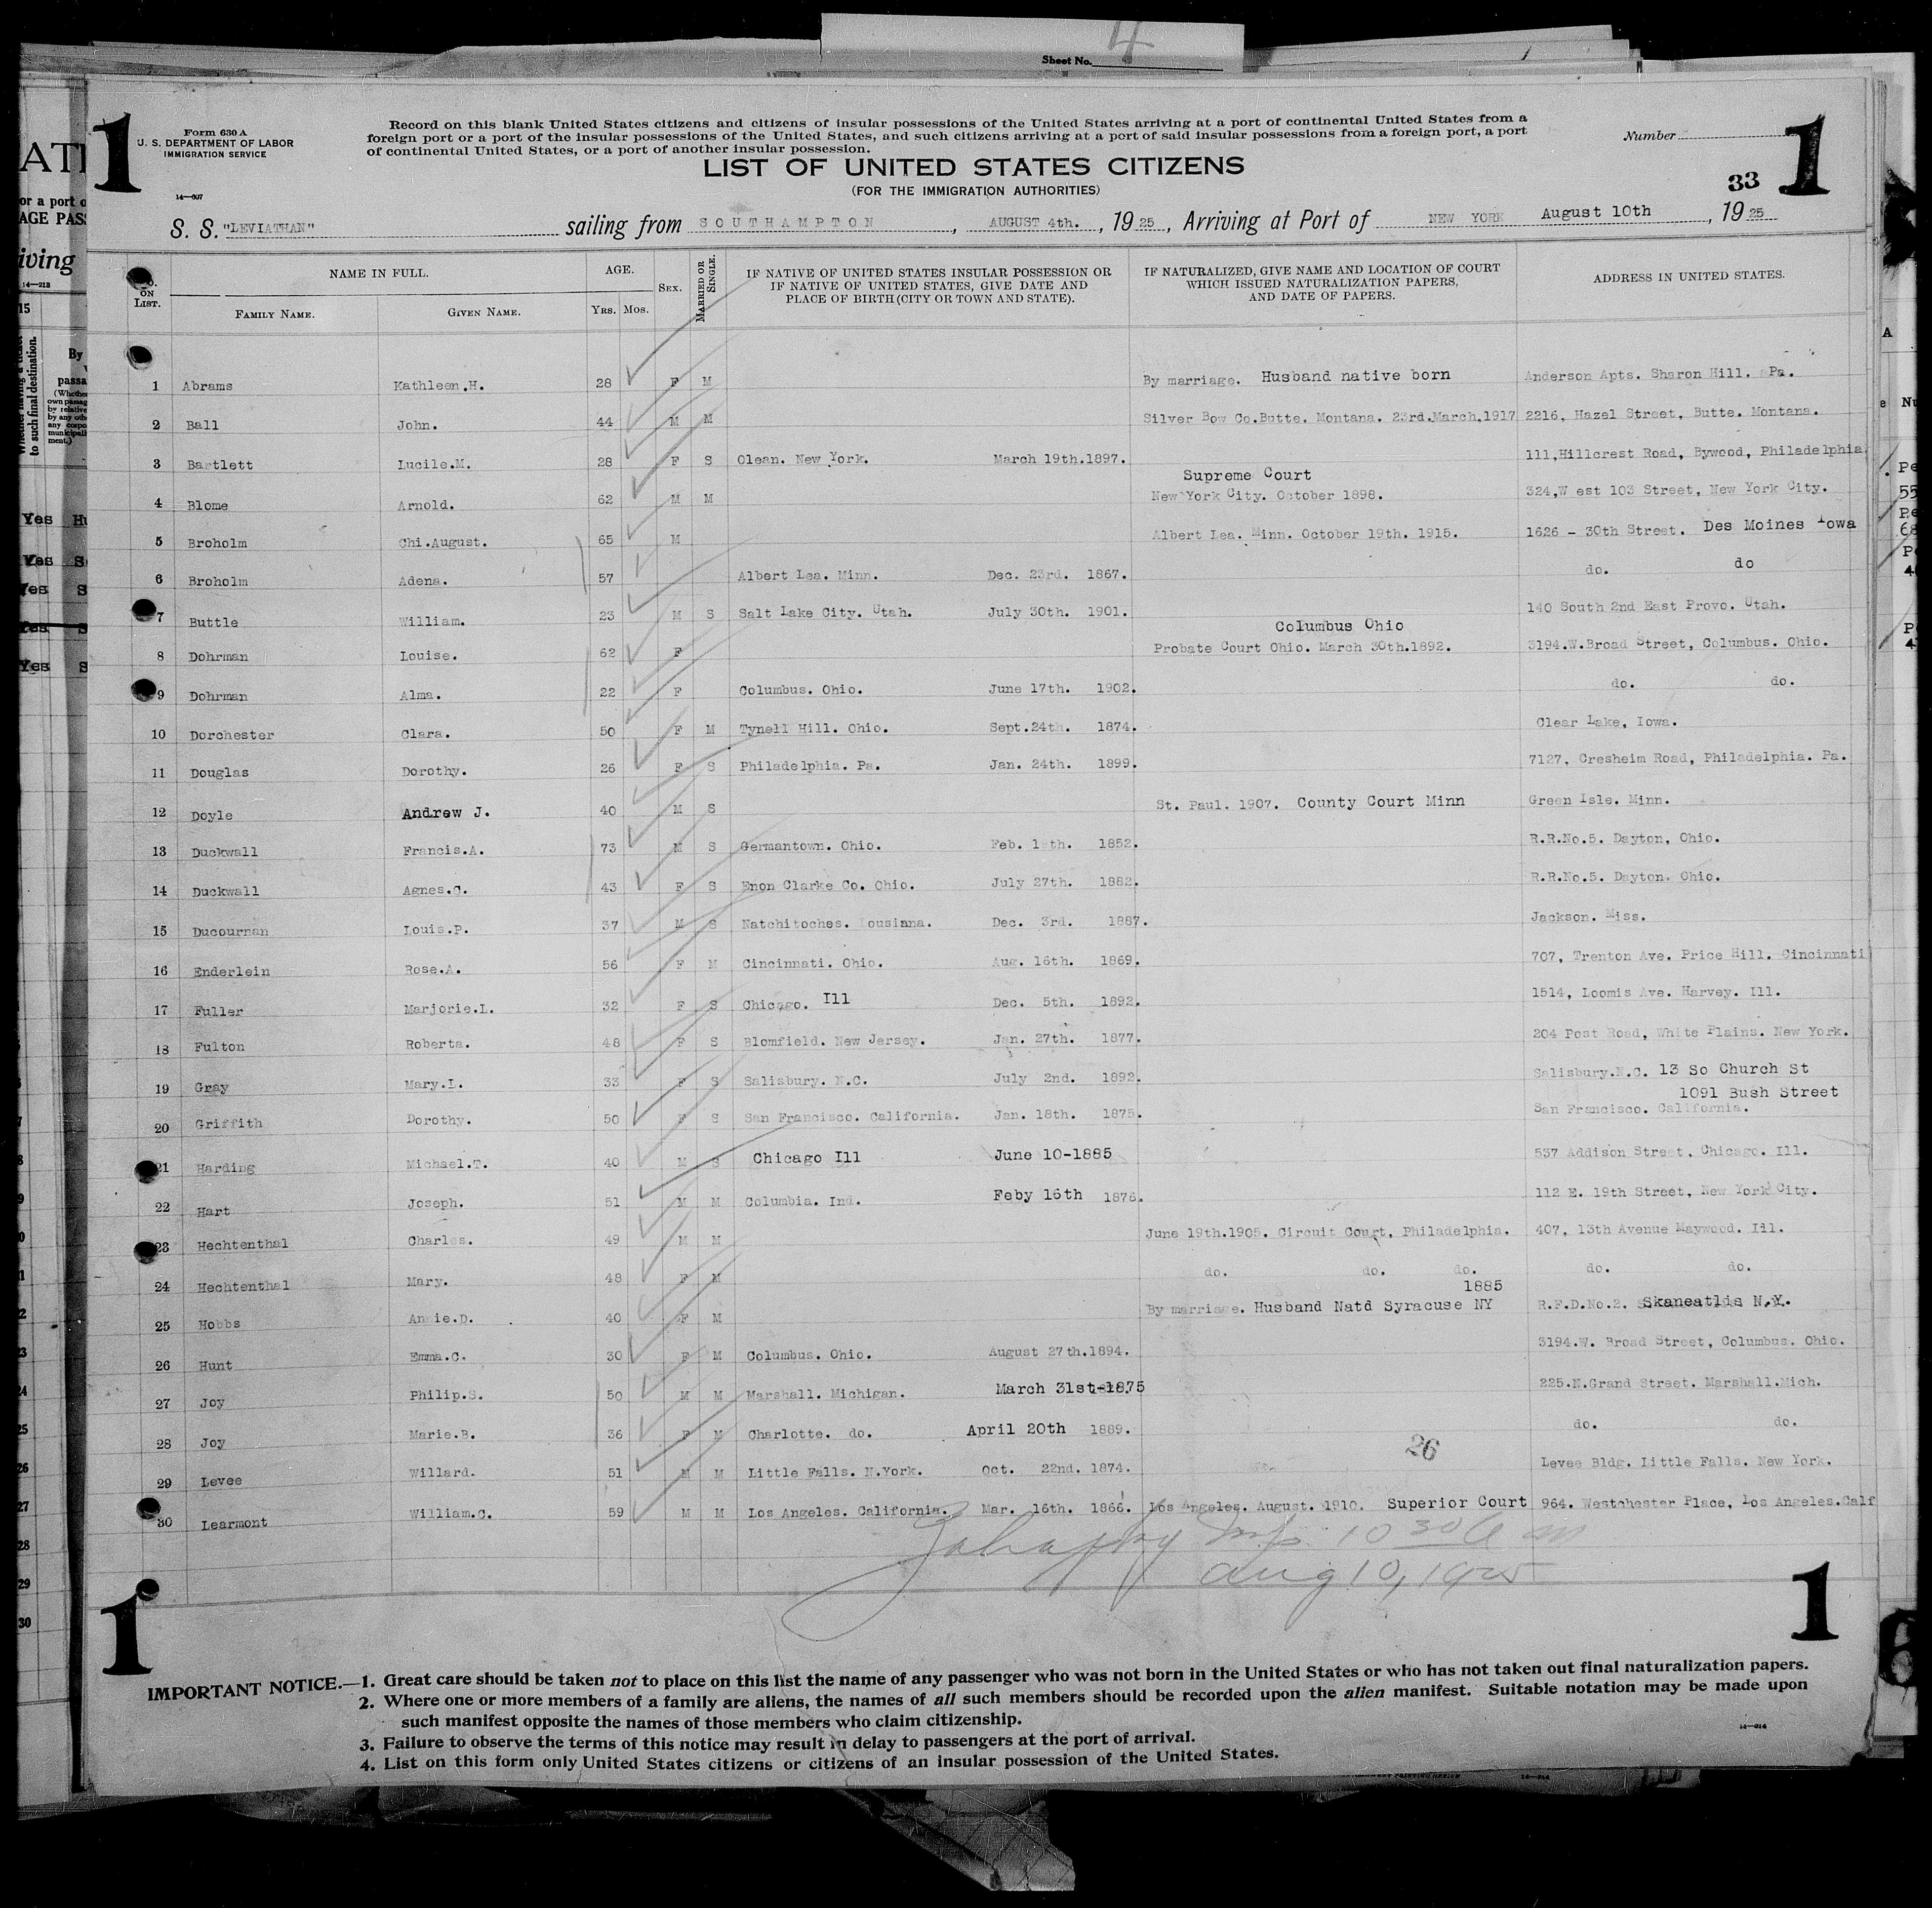 4
Sheet No.
1
Form 630 A
U. S. DEPARTMENT OF LABOR
IMMIGRATION SERVICE
14—607
Record on this blank United States citizens and citizens of insular possessions of the United States arriving at a port of continental United States from a
foreign port or a port of the insular possessions of the United States, and such citizens arriving at a port of said insular possessions from a foreign port, a port
of continental United States, or a port of another insular possession.
Number
1
LIST OF UNITED STATES CITIZENS
(FOR THE IMMIGRATION AUTHORITIES)
33
S. S. "LEVIATHAN" sailing from SOUTHAMPTON, AUGUST 4th., 1925, Arriving at Port of NEW YORK August 10th, 1925
No. ON LIST. NAME IN FULL. AGE. SEX. MARRIED OR SINGLE. IF NATIVE OF UNITED STATES INSULAR POSSESSION OR IF NATIVE OF UNITED STATES, GIVE DATE AND PLACE OF BIRTH (CITY OR TOWN AND STATE). IF NATURALIZED, GIVE NAME AND LOCATION OF COURT WHICH ISSUED NATURALIZATION PAPERS, AND DATE OF PAPERS. ADDRESS IN UNITED STATES.
FAMILY NAME. GIVEN NAME. YRS. MOS.
1 Abrams Kathleen.H. 28 F M By marriage. Husband native born Anderson Apts. Sharon Hill. Pa.
2 Ball John. 44 M M Silver Bow Co.Butte. Montana. 23rd.March,1917 2216, Hazel Street, Butte. Montana.
3 Bartlett Lucile.M. 28 F S Olean. New York. March 19th.1897. 111,Hillcrest Road, Bywood, Philadelphia
Supreme Court
4 Blome Arnold. 62 M M New York City. October 1898. 324,W est 103 Street, New York City.
5 Broholm Chi.August. 65 M Albert Lea. Minn. October 19th. 1915. 1626 - 30th Street. Des Moines Iowa
6 Broholm Adena. 57 Albert Lea. Minn. Dec. 23rd. 1867. do. do
7 Buttle William. 23 M S Salt Lake City. Utah. July 30th. 1901. 140 South 2nd East Provo. Utah.
Columbus Ohio
8 Dohrman Louise. 62 F Probate Court Ohio. March 30th.1892. 3194.W.Broad Street, Columbus. Ohio.
9 Dohrman Alma. 22 F Columbus. Ohio. June 17th. 1902. do. do.
10 Dorchester Clara. 50 F M Tynell Hill. Ohio. Sept.24th. 1874. Clear Lake, Iowa.
11 Douglas Dorothy. 26 F S Philadelphia. Pa. Jan. 24th. 1899. 7127, Cresheim Road, Philadelphia. Pa.
12 Doyle Andrew J. 40 M S St. Paul. 1907. County Court Minn Green Isle. Minn.
13 Duckwall Francis.A. 73 M S Germantown. Ohio. Feb. 1852. R.R.No.5. Dayton, Ohio.
14 Duckwall Agnes.C. 43 F S Enon Clarke Co. Ohio. July 27th. 1882. R.R.No.5. Dayton. Ohio.
15 Ducournan Louis.P. 37 M S Natchitoches. Lousiana. Dec. 3rd. 1887. Jackson. Miss.
16 Enderlein Rose.A. 56 F M Cincinnati. Ohio. Aug. 16th. 1869. 707, Trenton Ave. Price Hill. Cincinnati
17 Fuller Marjorie.L. 32 F S Chicago. Ill Dec. 5th. 1892. 1514, Loomis Ave. Harvey. Ill.
18 Fulton Roberta. 48 F S Blomfield. New Jersey. Jan. 27th. 1877. 204 Post Road, White Plains. New York.
19 Gray Mary.L. 33 F S Salisbury. N.C. July 2nd. 1892. Salisbury.N.C. 13 So Church St
1091 Bush Street
20 Griffith Dorothy. 50 F S San Francisco. California. Jan. 18th. 1875. San Francisco. California.
21 Harding Michael.T. 40 M S Chicago Ill June 10-1885 537 Addison Street. Chicago. Ill.
22 Hart Joseph. 51 M M Columbia. Ind. Feby 16th 1876. 112 E. 19th Street, New York City.
23 Hechtenthal Charles. 49 M M June 19th.1905. Circuit Court, Philadelphia. 407, 13th Avenue Maywood. Ill.
24 Hechtenthal Mary. 48 F M do. do. do. do. do.
1885
25 Hobbs Annie.D. 40 F M By marriage. Husband Natd Syracuse NY R.F.D.No.2. Skaneatlis N.Y.
26 Hunt Emma.C. 30 F M Columbus. Ohio. August 27th.1894. 3194.W. Broad Street, Columbus. Ohio.
27 Joy Philip.S. 50 M M Marshall. Michigan. March 31st-1875 225.N.Grand Street. Marshall.Mich.
28 Joy Marie.B. 36 F M Charlotte. do. April 20th 1889. do. do.
26
29 Levee Willard. 51 M M Little Falls. N.York. Oct. 22nd. 1874. Levee Bldg. Little Falls. New York.
30 Learmont William.C. 59 M M Los Angeles. California. Mar. 16th. 1866. Los Angeles. August. 1910. Superior Court 964. Westchester Place, Los Angeles.Calf
10 30 a m
Aug 10, 1925
1
1
IMPORTANT NOTICE.—1. Great care should be taken not to place on this list the name of any passenger who was not born in the United States or who has not taken out final naturalization papers.
2. Where one or more members of a family are aliens, the names of all such members should be recorded upon the alien manifest. Suitable notation may be made upon
such manifest opposite the names of those members who claim citizenship.
3. Failure to observe the terms of this notice may result in delay to passengers at the port of arrival.
4. List on this form only United States citizens or citizens of an insular possession of the United States.
14—614